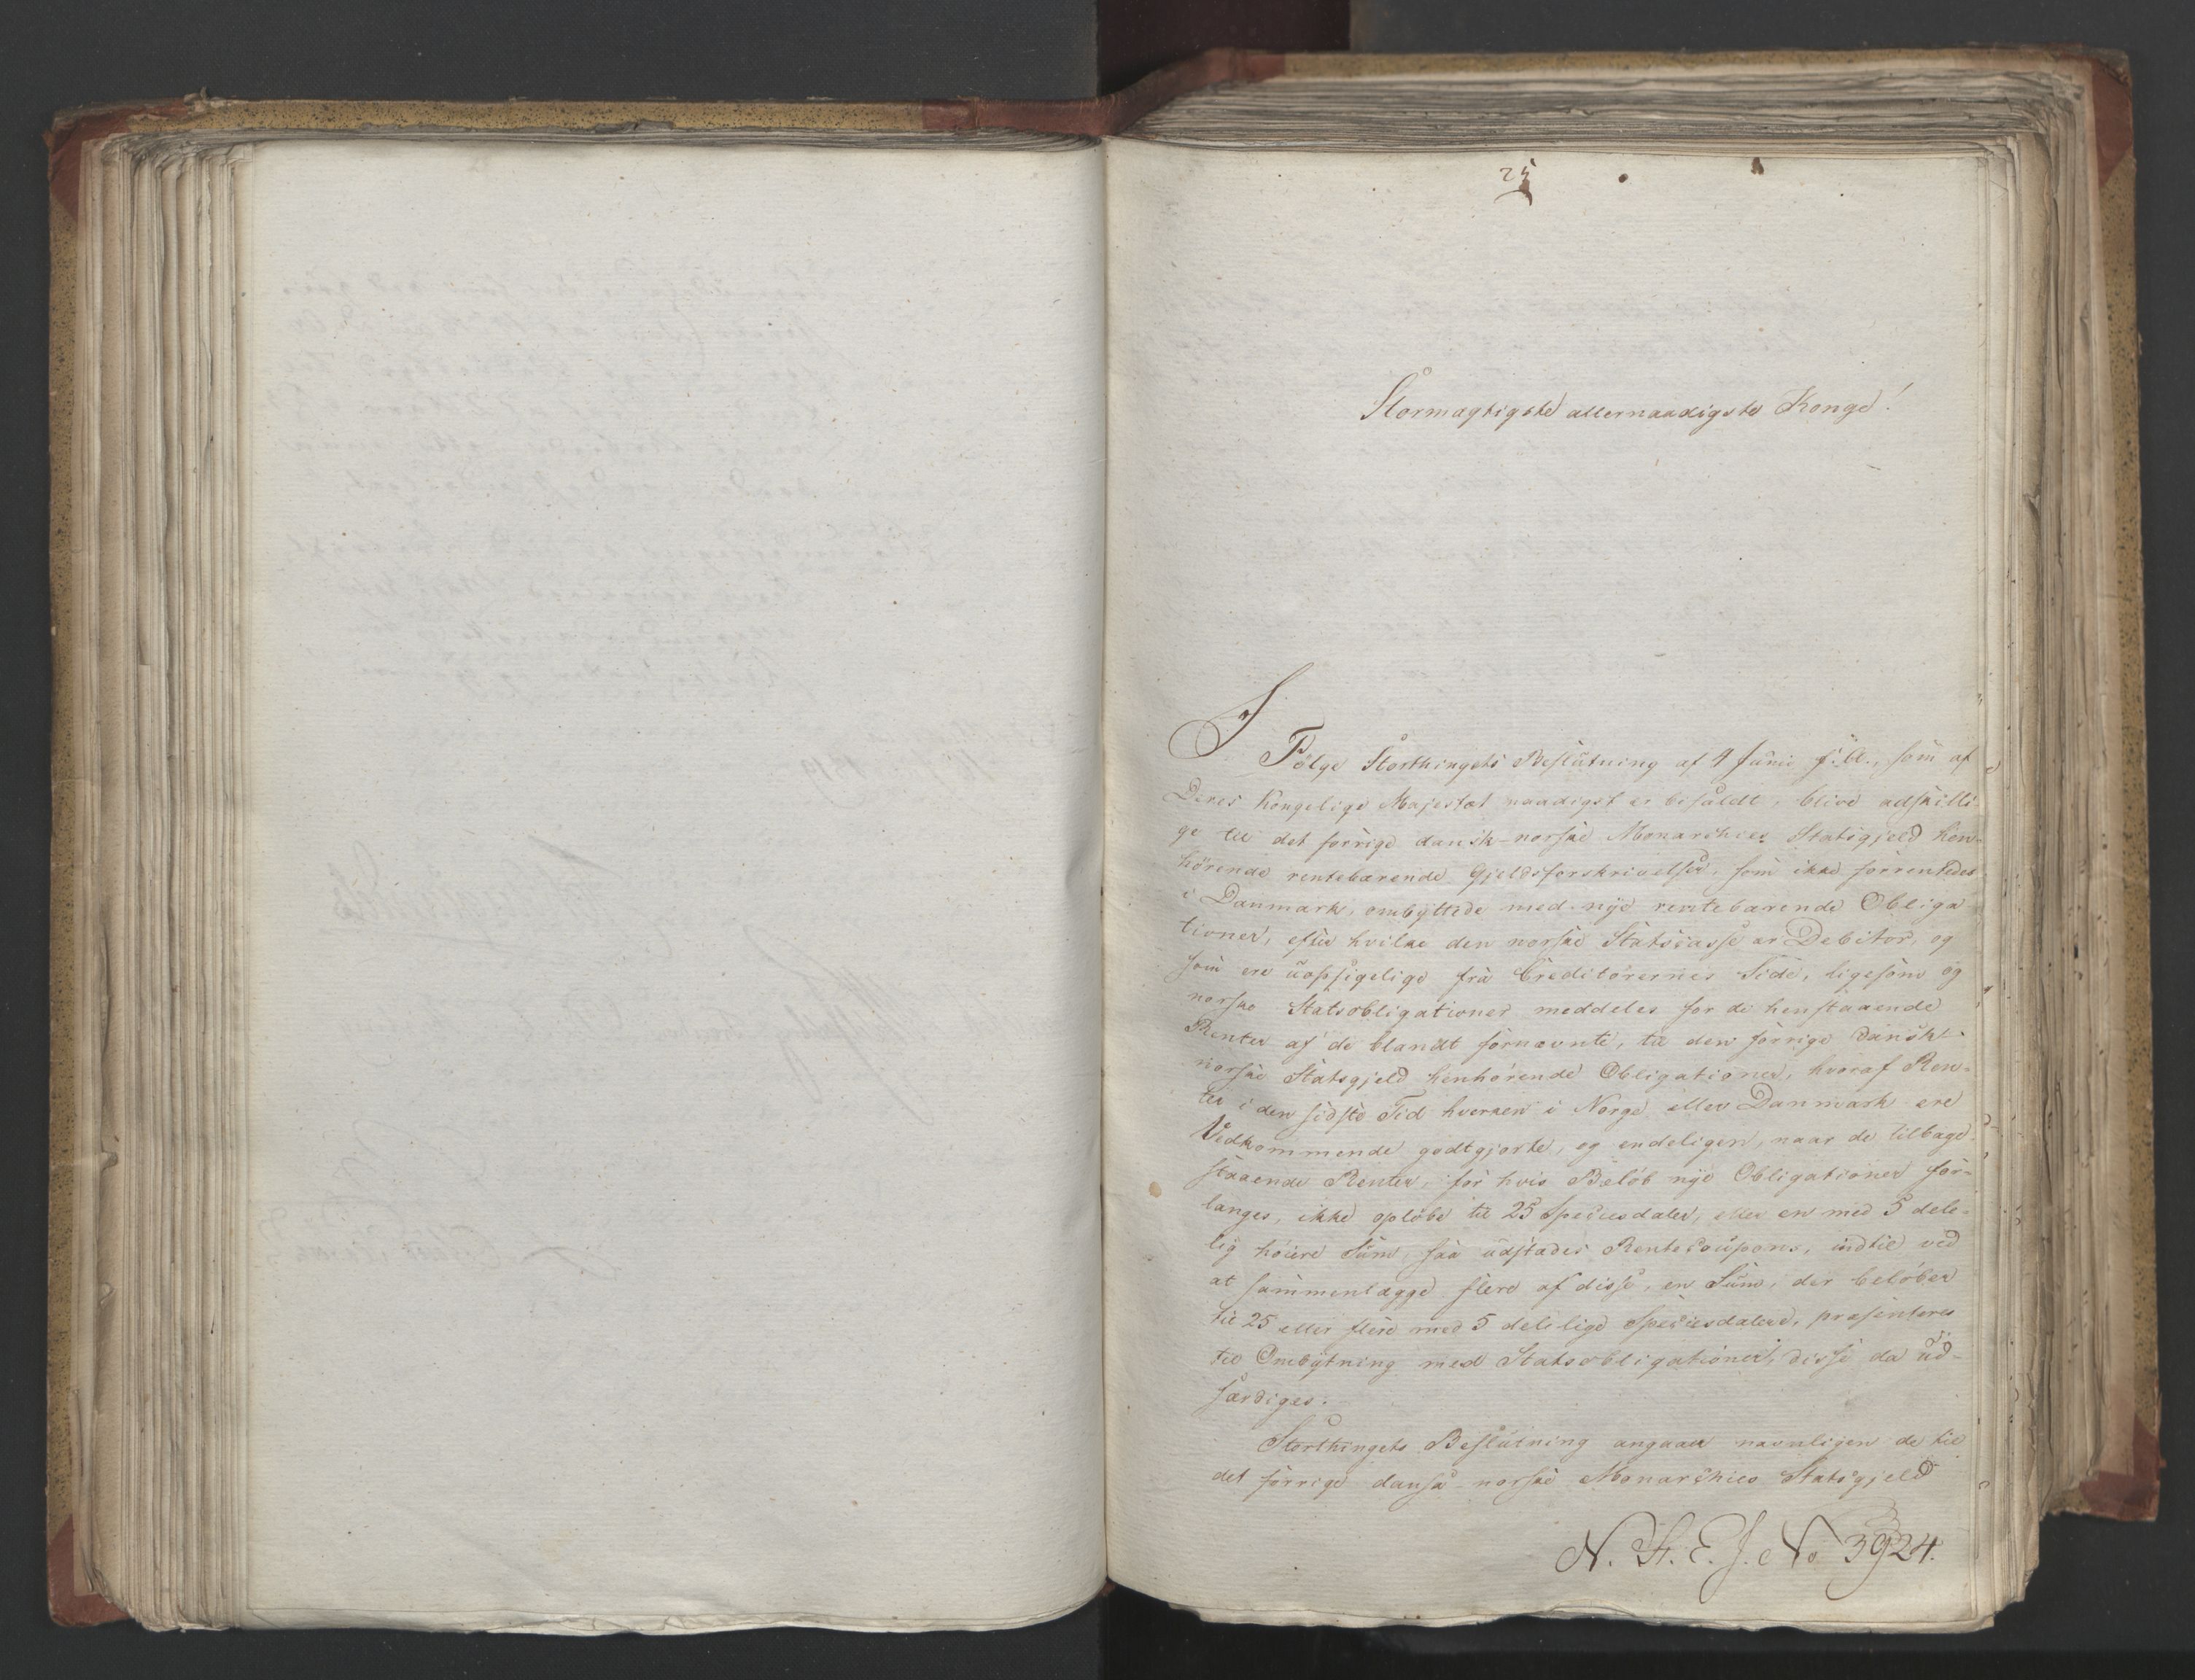 25
Stormægtigste allernaadigste Konge!
I
Følge Storthingets Beslutning af 4 Junii f: A., som af
Deres Kongelige Majestæt naadigst er bifaldt, blive adskilli
ge til det forrige dansk-norske Monarchies Statsgjeld hen-
hørende rentebærende Gjeldsforskrivelser, som ikke forrentedes
i Danmark, ombyttede med nye rentebærende Obliga
tioner, efter hvilke den norske Statscasse er Debitor, og
som ere uopsigelige fra Creditorernes Side, ligesom og
norske Statsobligationer meddeles for de henstaaende
Renter af de blandt fornævnte, til den forrige dansk-
norske Statsgjeld henhørende Obligationer, hvoraf Ren-
ter i den sidste Tid hverken i Norge eller Danmark ere
Vedkommende godtgjorte, og endeligen, naar de tilbage
staaende Renter, for hvis Beløb nye Obligationer for-
langes, ikke opløbe til 25 Speciesdaler, eller en med 5 dele-
lig høiere Sum, saa udstædes Rentecoupons, indtil ved
at sammenlægge flere af disse, en Sum, der beløber
til 25 eller flere med 5 delelige Speciesdalere, præsenteres
til Ombytning med Statsobligationer, disse da ud-
færdiges.
Storthingets Beslutning angaaer navnligen de til
det forrige dansk-norske Monarchies Statsgjeld
N. St. E. J. No 3924.